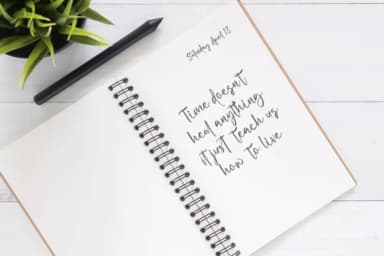 Saturday April 13
Time doesn't
heal anything
it just teach us
how to live